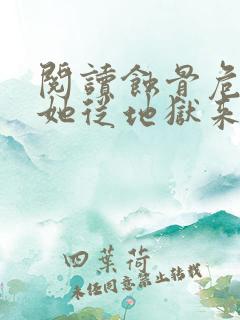 閱讀蝕骨危
她從地獄來
四葉荷
未經同意禁止轉載